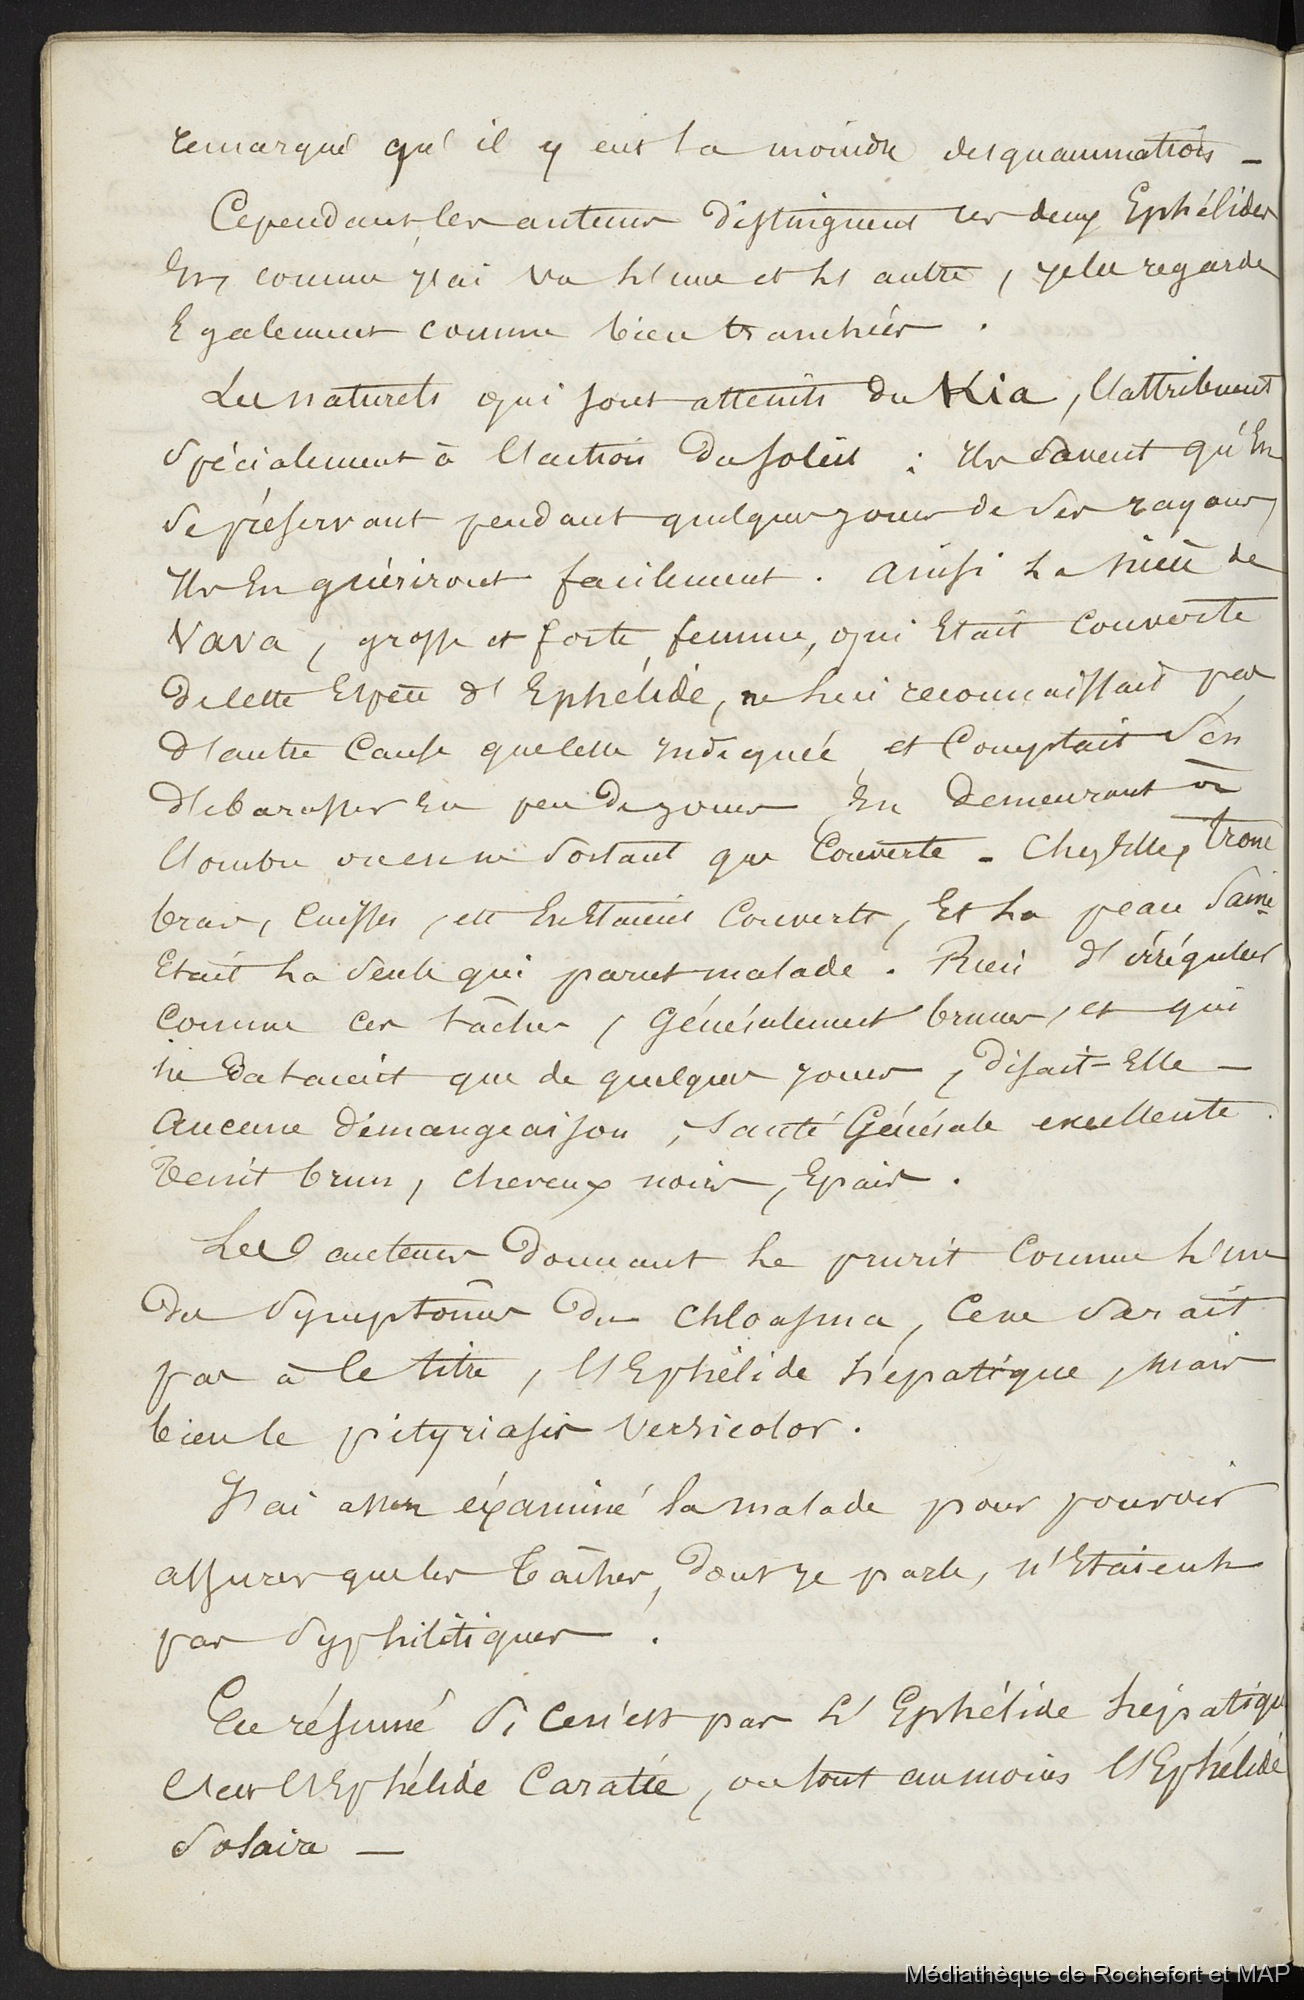 remarqué qu'il y eut la moindre desquammation –
Cependant les auteurs distinguent ces deux Ephélides
Et, comme j'ai vu l'une et l'autre, je les regarde
Egalement comme bien tranchées.
Les naturels qui sont atteints du Kia, l'attribuent
spécialement à l'action du soleil : Ils savent qu'en
se préservant pendant quelques jours de ses rayons,
Ils en guériront facilement. Ainsi la nièce de
Vava, grosse et forte femme, qui Etait couverte
de cette Espèce d'Ephélide, ne lui reconnaissait pas
d'autre cause que celle indiquée et comptait s'en
débarasser en peu de jours En demeurant à
l'ombre ou en ne sortant que couverte – Chez Elle, tronc
bras, cuisses, ett en Etaient couverts, Et la peau saine
Etait la seule qui parut malade. Rien d'irrégulier
comme ces tâches, généralement brunes, et qui
ne dataient que de quelques jours, disait-Elle –
aucune démangeaison, santé Générale excellente.
Teint brun, cheveux noirs, Epais.
Les auteurs donnant le prurit comme l'un
des symptômes du chloasma, ce ne serait
pas à ce titre, l'Ephélide hépatique, mais
bien le pityriasis versicolor.
J'ai assez éxaminé la malade pour pouvoir
assurer que les Tâches, dont je parle, n'Etaient
pas syphilitiques.
En résumé si ce n'est pas l'Ephélide hépatique
c'est l'Ephélide Caratée, ou tout au moins l'Ephélide
solaire –
Médiathèque de Rochefort et MAP